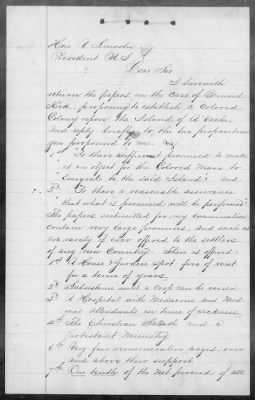 Hon A Lincoln
President U S
Dear Sir
I herewith
return the papers in the Case of Bernard
Kock, proposing to establish a Colored
Colony upon the Island of A'Vache.
and reply briefly to the two propositions
you propound to me.
1st To have sufficient promised to make
it an object for the Colored Man to
Emigrate to the said Island: And
2d To have a reasonable assurance
that what is promised will be performed
The papers submitted for my examination
contain very large promises, and such as
are rarely if ever offered to the settlers
of any new Country. There is offered
1st A House & Garden spot, free of rent
for a term of years.
2d Subsistence until a crop can be raised.
3d A Hospital with Medicine and Med
ical attendants in time of sickness.
4th The Christian Sabbath and a
protestant Ministry.
6th Very fair remunerative wages over
and above their support.
7th One tenth of the Net proceeds of all